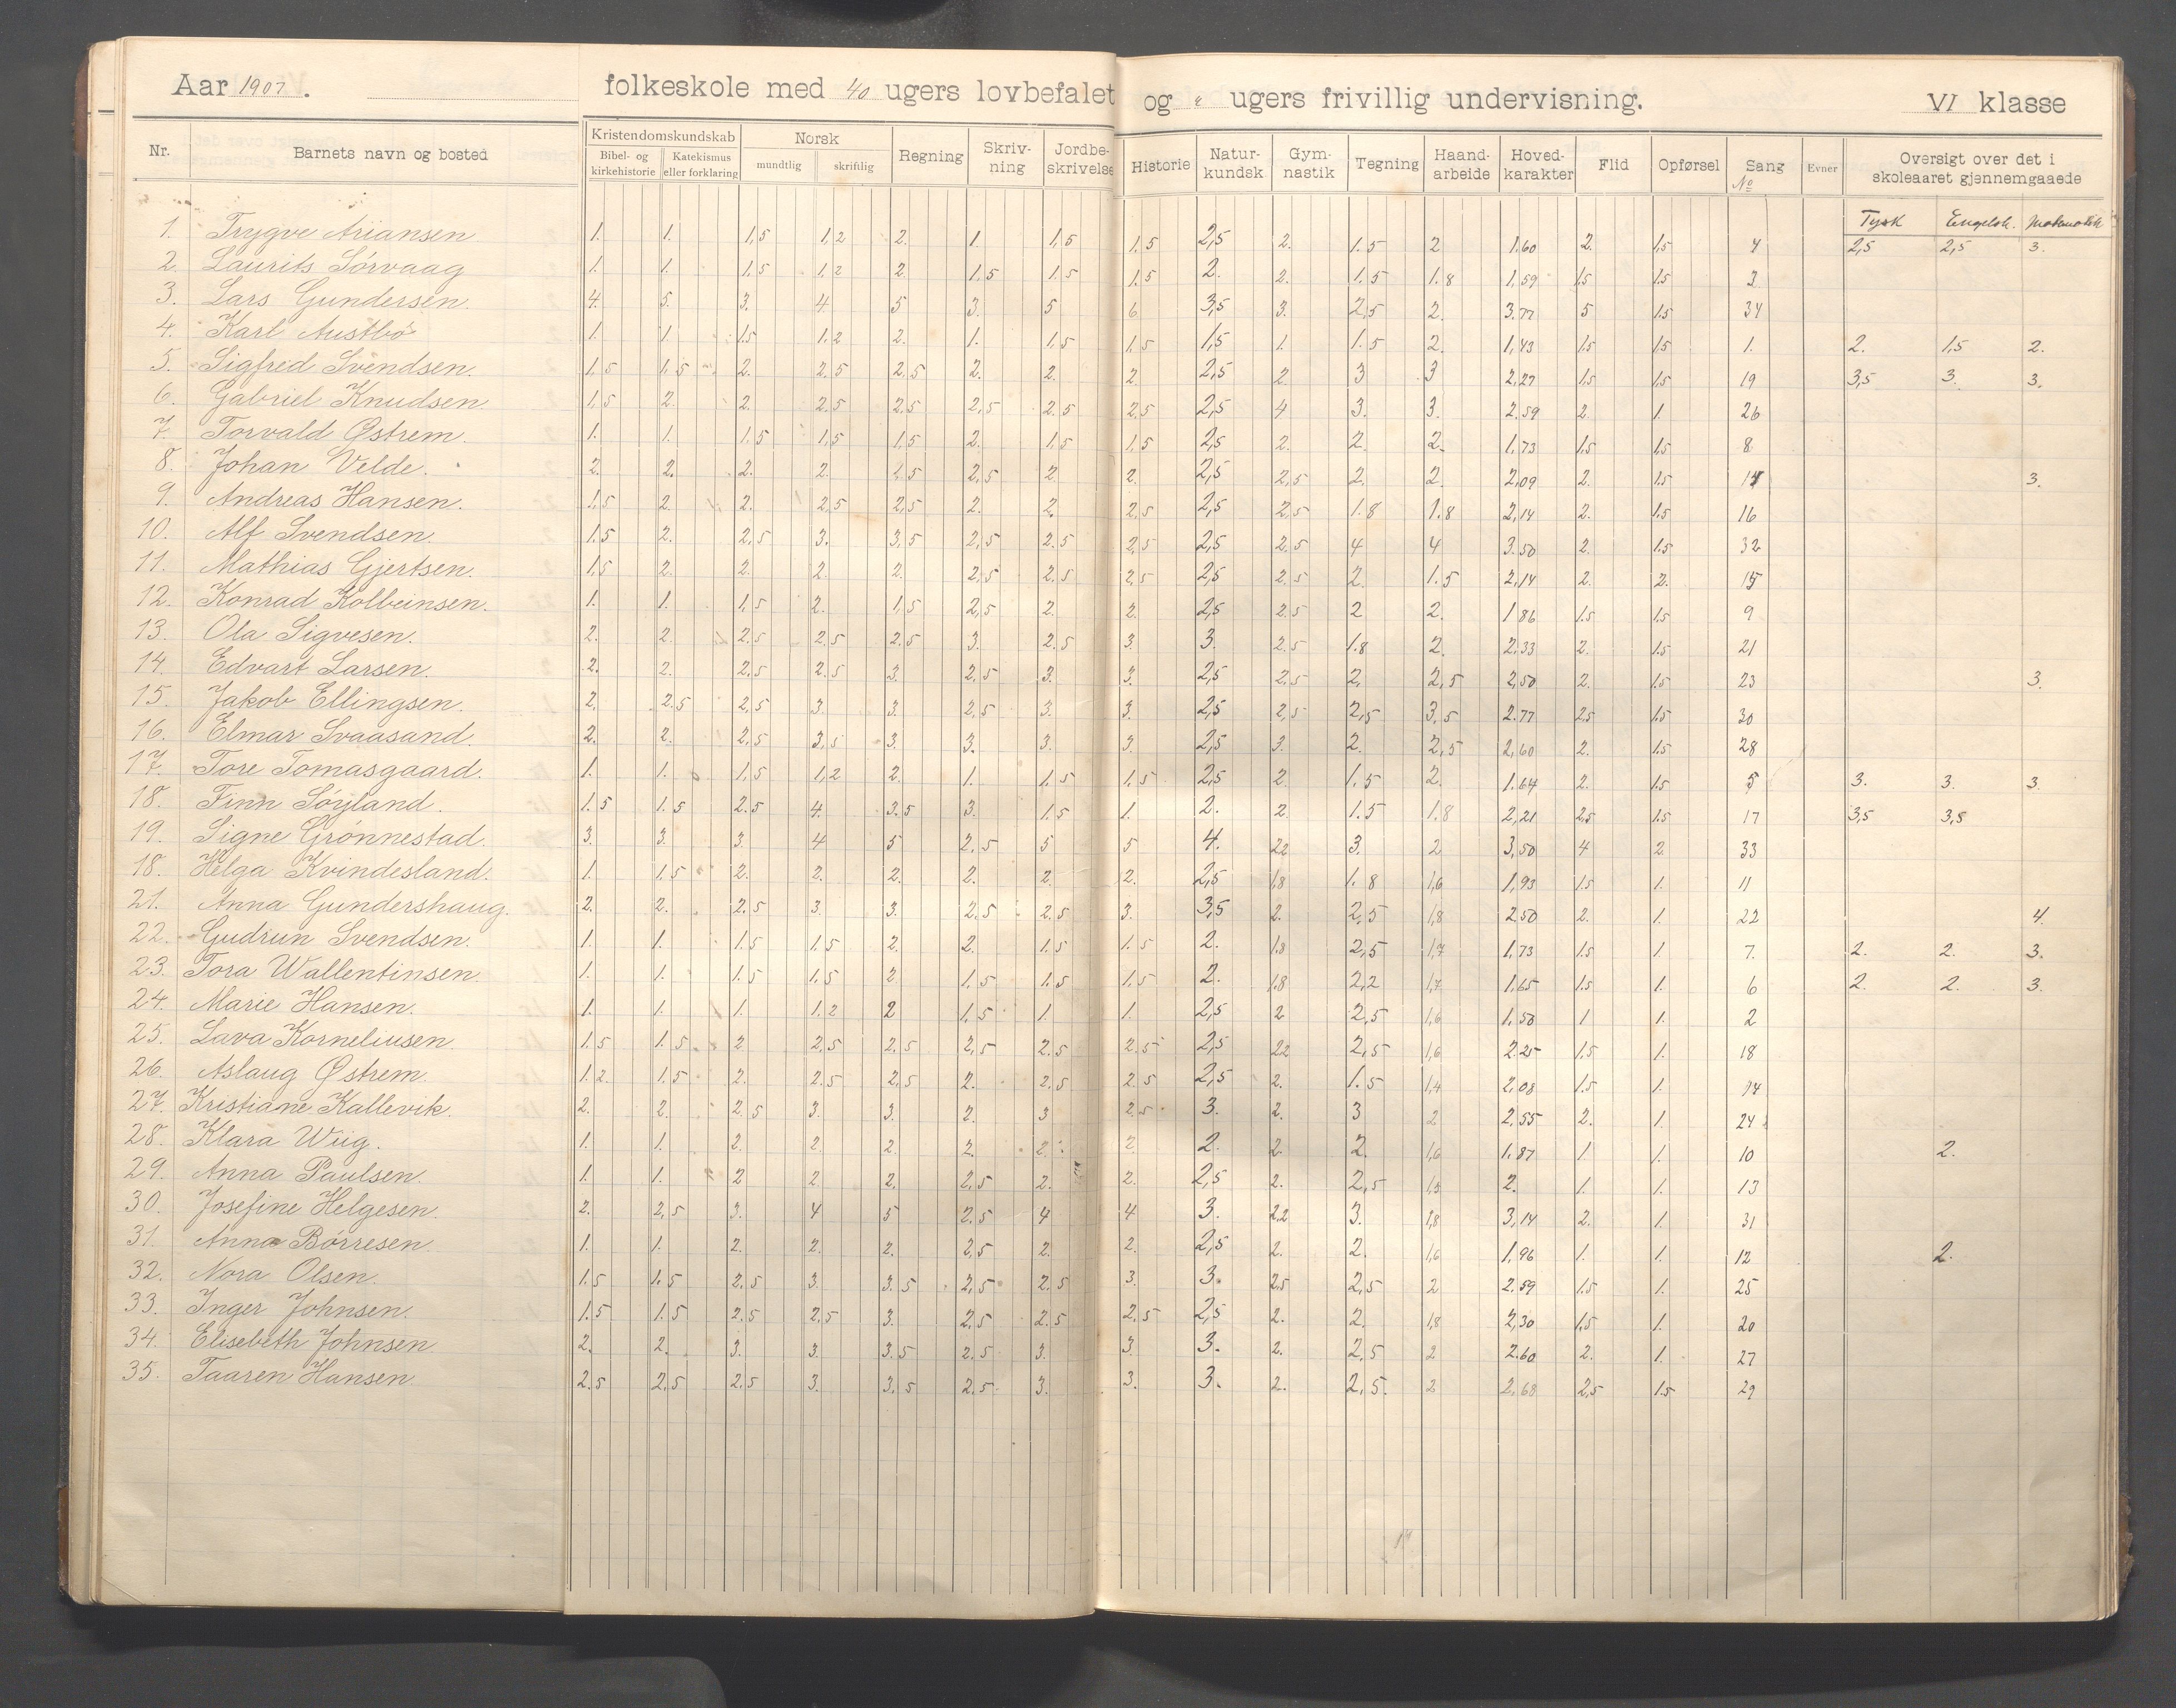 Aar 1907. folkeskole med 40 ugers lovbefalet og " ugers frivillig undervisning. VI klasse
Nr. Barnets navn og bosted Kristendomskundskab Bibel- og kirkehistorie Katekismus eller forklaring Norsk mundtlig skriftlig Regning Skriv-ning Jordbe-skrivelse Historie Natur-kundsk Gym-nastik Tegning Haand-arbeide Hoved-karakter Flid Opførsel Sang No Evner Oversigt over det i skoleaaret gjennemgaaede
Tysk Engelsk. Matematik
1. Trygve Ariansen 1. 1. 1,5 1,2 2. 1. 1,5 1.5 2,5 2. 1.5 2 1.60 2. 1.5 4 2,5 2,5 3.
2. Laurits Sørvaag 1. 1. 1.5 1,2 2. 1,5 1.5 1.5 2. 2. 1.5 1.8 1,59 1.5 1.5 3
3. Lars Gundersen. 4. 5. 3. 4 5 3. 5 6 3,5 3. 2,5 2. 3.77 5 1.5 34
4. Karl Austbø 1. 1. 1.5 1.2 2. 1. 1,5 1,5 1,5 1. 1.5 2. 1,43 1.5 1.5 1. 2. 1,5 2.
5. Sigfred Svendsen. 1.5 1,5 2. 2.5 2.5 2. 2. 2. 2,5 2. 3 3 2,27 1.5 1.5 19 3,5 3. 3.
6. Gabriel Knudsen 1,5 2. 2. 2.5 2.5 2,5 2.5 2.5 2,5 4 3. 3. 2.59 2. 1. 26
7. Torvald Østrem. 1. 1. 1,5 1,5 1,5 2. 1,5 1.5 2,5 2. 2 2. 1,73 1.5 1.5 8
8. Johan Velde. 2. 2. 2. 2. 1,5 2,5 2. 2. 2,5 2,5 2. 2. 2,09 2. 1.5 14 3.
9. Andreas Hansen. 1,5 2. 2. 2,5 2,5 2. 2. 2,5 2,5 2,5 1.8 1.8 2,14 2. 1.5 16
10. Alf Svendsen. 1.5 2. 2,5 3. 3,5 2,5 2.5 2,5 2,5 2.5 4 4 3.50 2. 1.5 32
11. Mathias Gjertsen. 1,5 2. 2. 2. 2. 2,5 2.5 2.5 2,5 2.5 2. 1.5 2,14 2. 2. 15
12. Konrad Kolbeinsen. 1. 1. 1,5 2. 1,5 2,5 2. 2. 2,5 2.5 2 2. 1 86 1.5 1.5 9
13. Ola Sigvesen. 2. 2. 2.5 2.5 2.5 3. 2.5 3. 3. 2.5 1.8 2. 2.33 2. 1.5 21
14. Edvart Larsen. 2. 2. 2,5 2.5 3. 2,5 3. 3. 2,5 2,5 2. 2,5 2,50 2. 1.5 23 3.
15. Jakob Ellingsen. 2. 2.5 2,5 3. 3. 2.5 3. 3. 2,5 2,5 2,5 3,5 2.77 2.5 1.5 30
16. Elmar Svaasand. 2. 2. 2,5 3,5 3. 3. 3. 3. 2,5 3. 2. 2,5 2,60 2. 1.5 28
17. Tore Tomasgaard. 1. 1. 1,5 1,2 2. 1. 1.5 1.5 2,5 2 1.5 2. 1.64 2. 1.5 5 3. 3. 3.
18. Finn Søyland. 1.5 1.5 2.5 4. 3.5 3. 1.5 1. 2. 2. 1.5 1.8 2,21 2.5 1.5 17 3,5 3,5
19. Signe Grønnestad. 3. 3. 3. 4 5 2.5 5 5 4. 2,2 3. 2 3,50 4 2. 33
18. Helga Kvindesland. 1. 1,5 2. 2. 2. 2. 2. 2. 2,5 1,8 1.8 1,6 1,93 1.5 1. 11
21. Anna Gundershaug. 2. 2. 2.5 3. 3. 2.5 2.5 3. 3,5 2. 2,5 1,8 2.50 2. 1. 22 4.
22. Gudrun Svendsen. 1. 1. 1.5 1.5 2. 2. 1.5 1.5 2. 1.8 2,5 1,7 1,73 1.5 1 7. 2. 2. 3.
23. Tora Wallentinsen. 1. 1. 1.5 1,5 2. 1,5 1.5 1,5 2. 1.8 2,2 1,7 1,65 1.5 1. 6 2. 2. 3.
24. Marie Hansen. 1. 1. 1. 1.2 2 1,5 1. 1. 2,5 2 2,5 1,6 1,50 1 1. 2
25. Lava Korneliusen 1.5 1.5 2. 2,5 2.5 2,5 2.5 2.5 2,5 2,2 2,5 1,6 2.25 1.5 1. 18
26. Aslaug Østrem. 1.2. 1.5 2. 2.5 2,5 2. 2.5 2.5 2,5 2. 1.5 1,4 2,08 1.5 1. 14
27. Kristiane Kallevik. 2. 2. 2.5 3. 3. 2. 3 2.5 3. 2. 3 2 2,55 2. 1. 24
28. Klara Wiig. 1. 1. 2. 2. 2. 2. 2. 2 2. 2. 2. 1,6 1.87 1. 1. 10 2.
29. Anna Paulsen. 1. 1. 2 2. 2. 2,5 2. 2. 2,5 2. 2,5 1,5 2. 1. 1. 13
30. Josefine Helgesen. 2. 2,5 3. 4 5 2.5 4 4 3. 2,2 3. 1,8 3,14 2. 1. 31
31. Anna Børresen. 1. 1. 2. 2. 2. 2,5 2. 2. 2,5 2. 2. 1,6 1,96 1. 1. 12 2.
32. Nora Olsen. 1.5 1.5 2.5 3. 3.5 2,5 2.5 3. 3. 2,5 2,5 2 2.59 1.5 1. 25
33. Inger Johnsen. 1.5 1.5 2.5 2,5 3. 2,5 2.5 2,5 2,5 2. 2. 1,8 2,30 1,5 1. 20
34. Elisebeth Johnsen 2. 2. 3. 3. 3.5 2.5 3. 3. 3. 2. 2,5 2 2.60 2. 1. 27
35. Taaren Hansen. 2.5 2,5 2,5 3. 3,5 2,5 3. 3. 3. 2. 2,5. 2 2,68 2,5 1.5 29